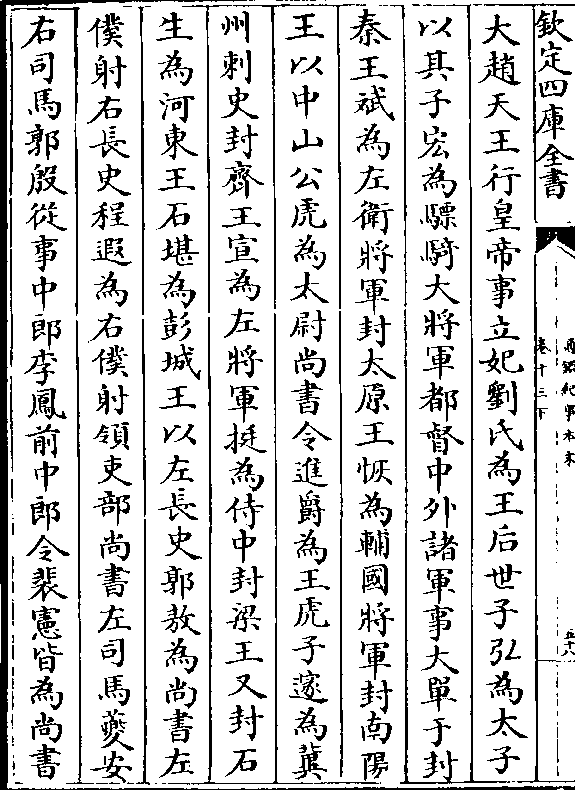 欽定四庫全書
通鑑紀事本末
卷十三下
五十八
大趙天王行皇帝事立妃劉氏為王后世子弘為太子
以其子宏為驃騎大將軍都督中外諸軍事大單于封
秦王斌為左衛將軍封太原王恢為輔國將軍封南陽
王以中山公虎為太尉尚書令進爵為王虎子邃為冀
州刺史封齊王宣為左將軍挺為侍中封梁王又封石
生為河東王石堪為彭城王以左長史郭敖為尚書左
僕射右長史程遐為右僕射領吏部尚書左司馬夔安
右司馬郭殷從事中郎李鳳前中郎令裴憲皆為尚書